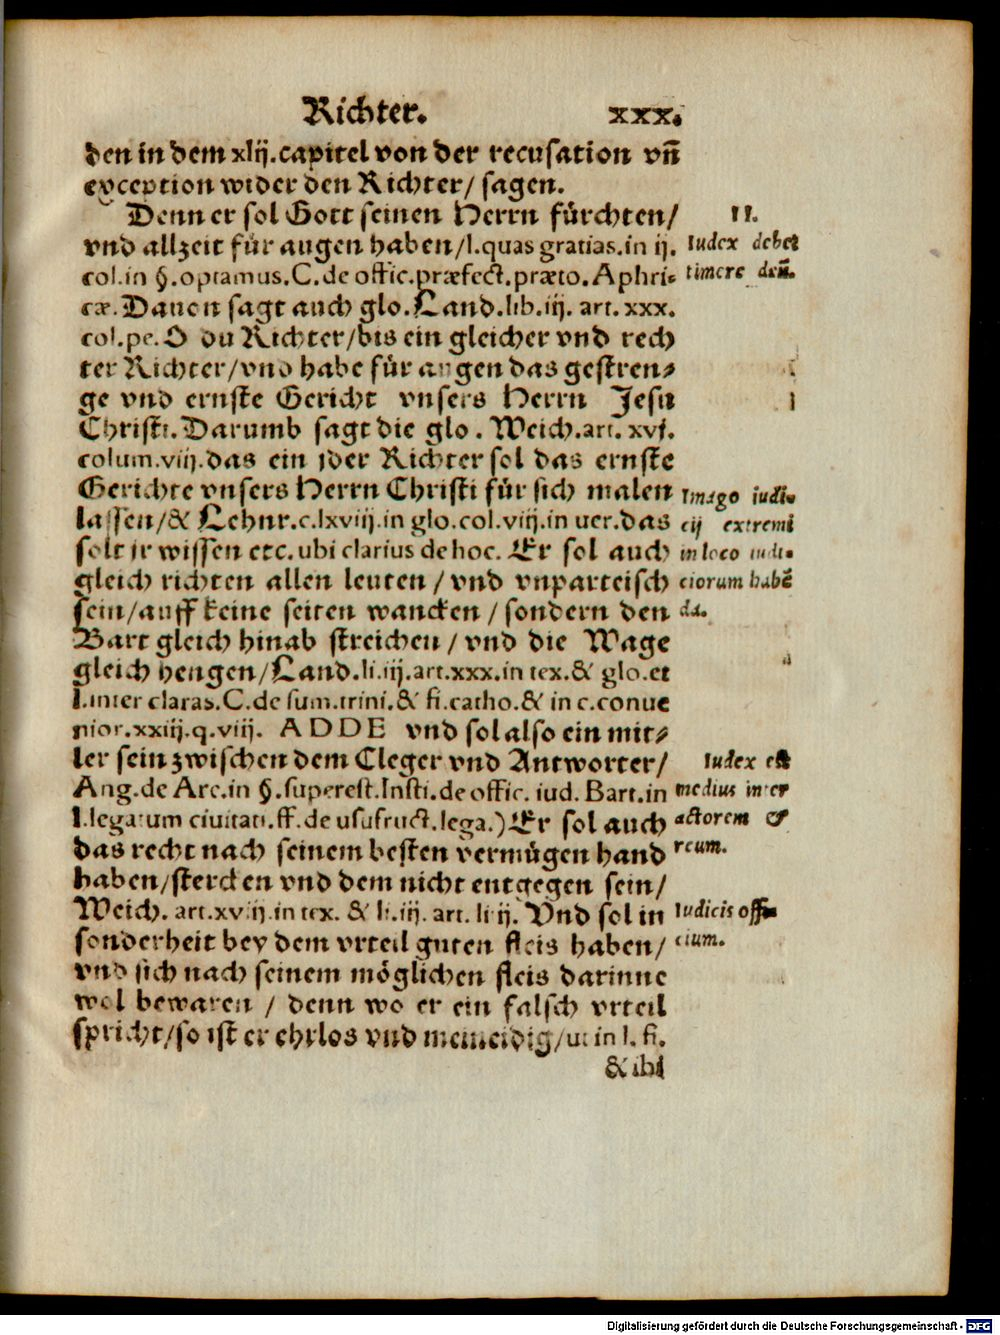 Richter. xxx.
den in dem xlij.capitel von der recusation vñ
exception wider den Richter/ sagen.
Denn er sol Gott seinen Herrn fürchten/
vnd allzeit für augen haben/l.quas gratias.in ij.
col.in §.optamus.C.de offic.præfect.præto.Aphri-
cæ.Dauon sagt auch glo.Land.lib.iij. art.xxx.
col.pe.O du Richter/bis ein gleicher vnd rech
ter Richter/vnd habe für augen das gestren-
ge vnd ernste Gericht vnsers Herrn Jesu
Christi.Darumb sagt die glo. Weich.art. xvj.
colum.viij.das ein jder Richter sol das ernste
Gerichte vnsers Herrn Christi für sich malen
lassen/& Lehnr.c.lxviij.in glo.col.viij.in uer.das
solt jr wissen etc. ubi clarius de hoc. Er sol auch
gleich richten allen leuten / vnd vnparteisch
sein/auff keine seiten wancken / sondern den
Bart gleich hinab streichen / vnd die Wage
gleich hengen/Land.li.iij.art.xxx.in tex.& glo.et
l.inter claras.C.de sum.trini.& fi.catho.& in c.conue
nior.xxiij.q.viij. ADDE vnd sol also ein mit-
ler sein zwischen dem Cleger vnd Antworter/
Ang.de Are.in §.superest.Insti.de offic. iud. Bart.in
l.legatum ciuitati.ff.de usufruct.lega.) Er sol auch
das recht nach seinem besten vermügen hand
haben/stercken vnd dem nicht entgegen sein/
Weich. art.xvij.in tex. & li.iij. art. Vnd sol in
sonderheit bey dem vrteil guten fleis haben/
vnd sich nach seinem möglichen fleis darinne
wol bewaren / denn wo er ein falsch vrteil
spricht/so ist er ehrlos vnd meineidig/ut in l. fi.
& ibi
II.
Iudex debet
timere deũ.
Imago iudi-
cij extremi
in loco iudi-
ciorum habẽ
da.
Iudex est
medius inter
actorem &
reum.
Iudicis offi-
cium.
Digitalisierung gefördert durch die Deutsche Forschungsgemeinschaft - DFG